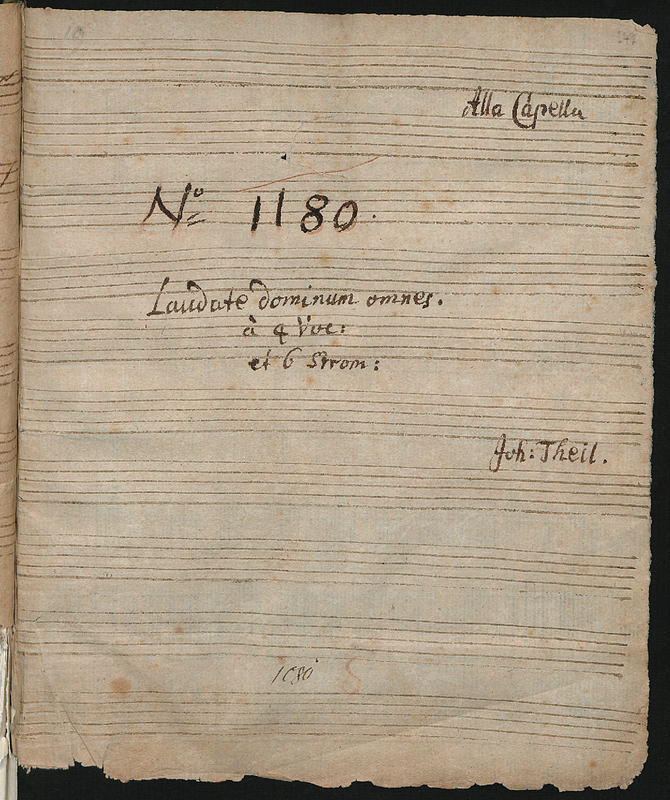 Alla Capella
No 1180.
Laudate dominum omnes.
à 4 Voc:
et 6 Strom:
Joh: Theil.